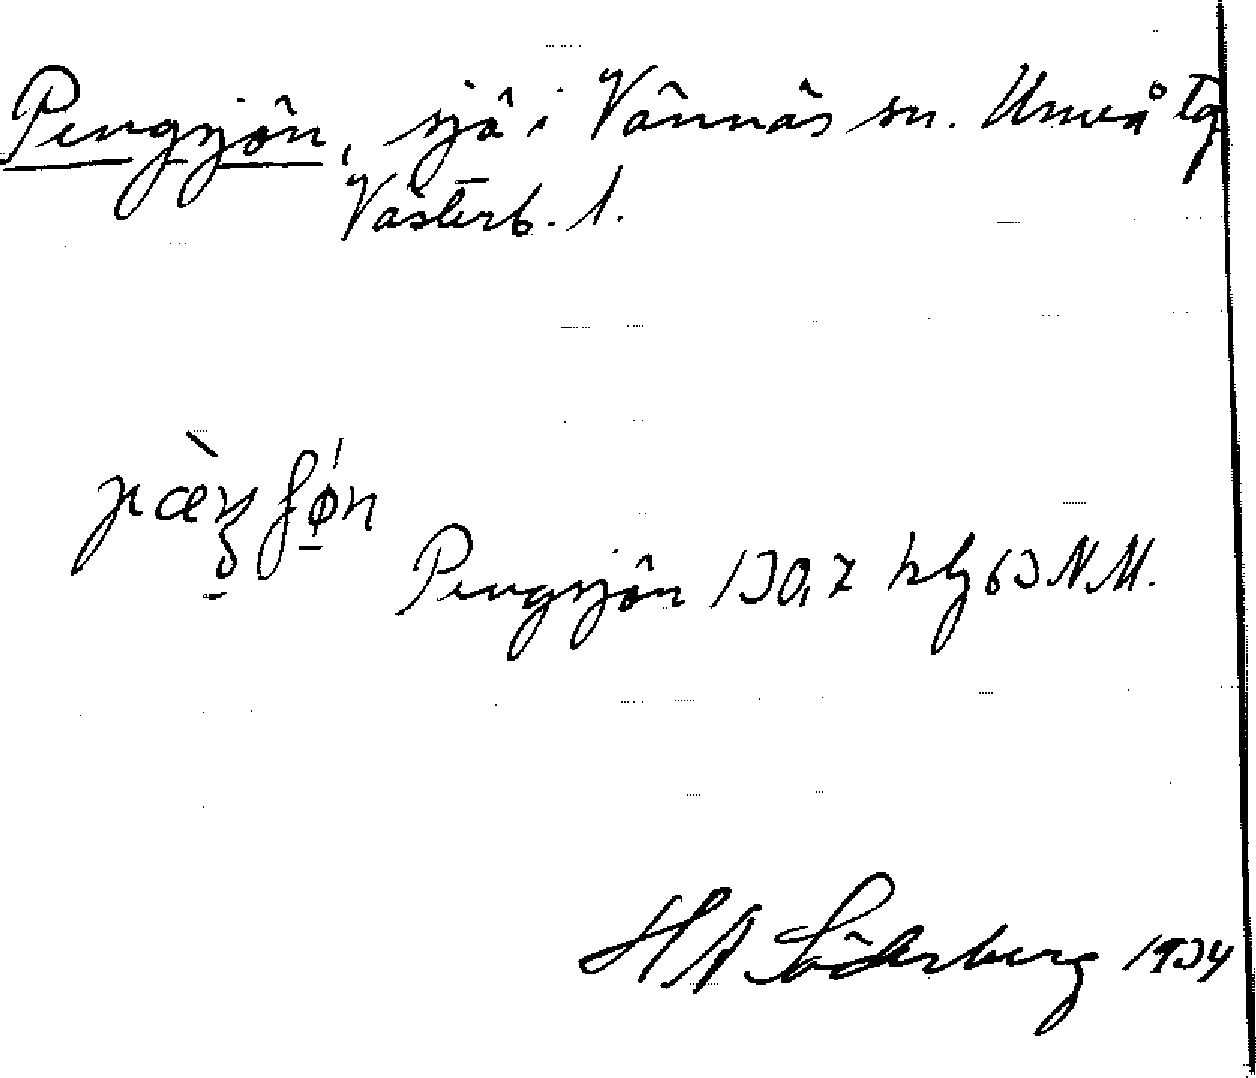 Pengsjön, sjö i Vännäs sn. Umeå tg
Västerb. l.
Pengsjön 130,7 hbl 63 N.M.
H A Söderberg 1934